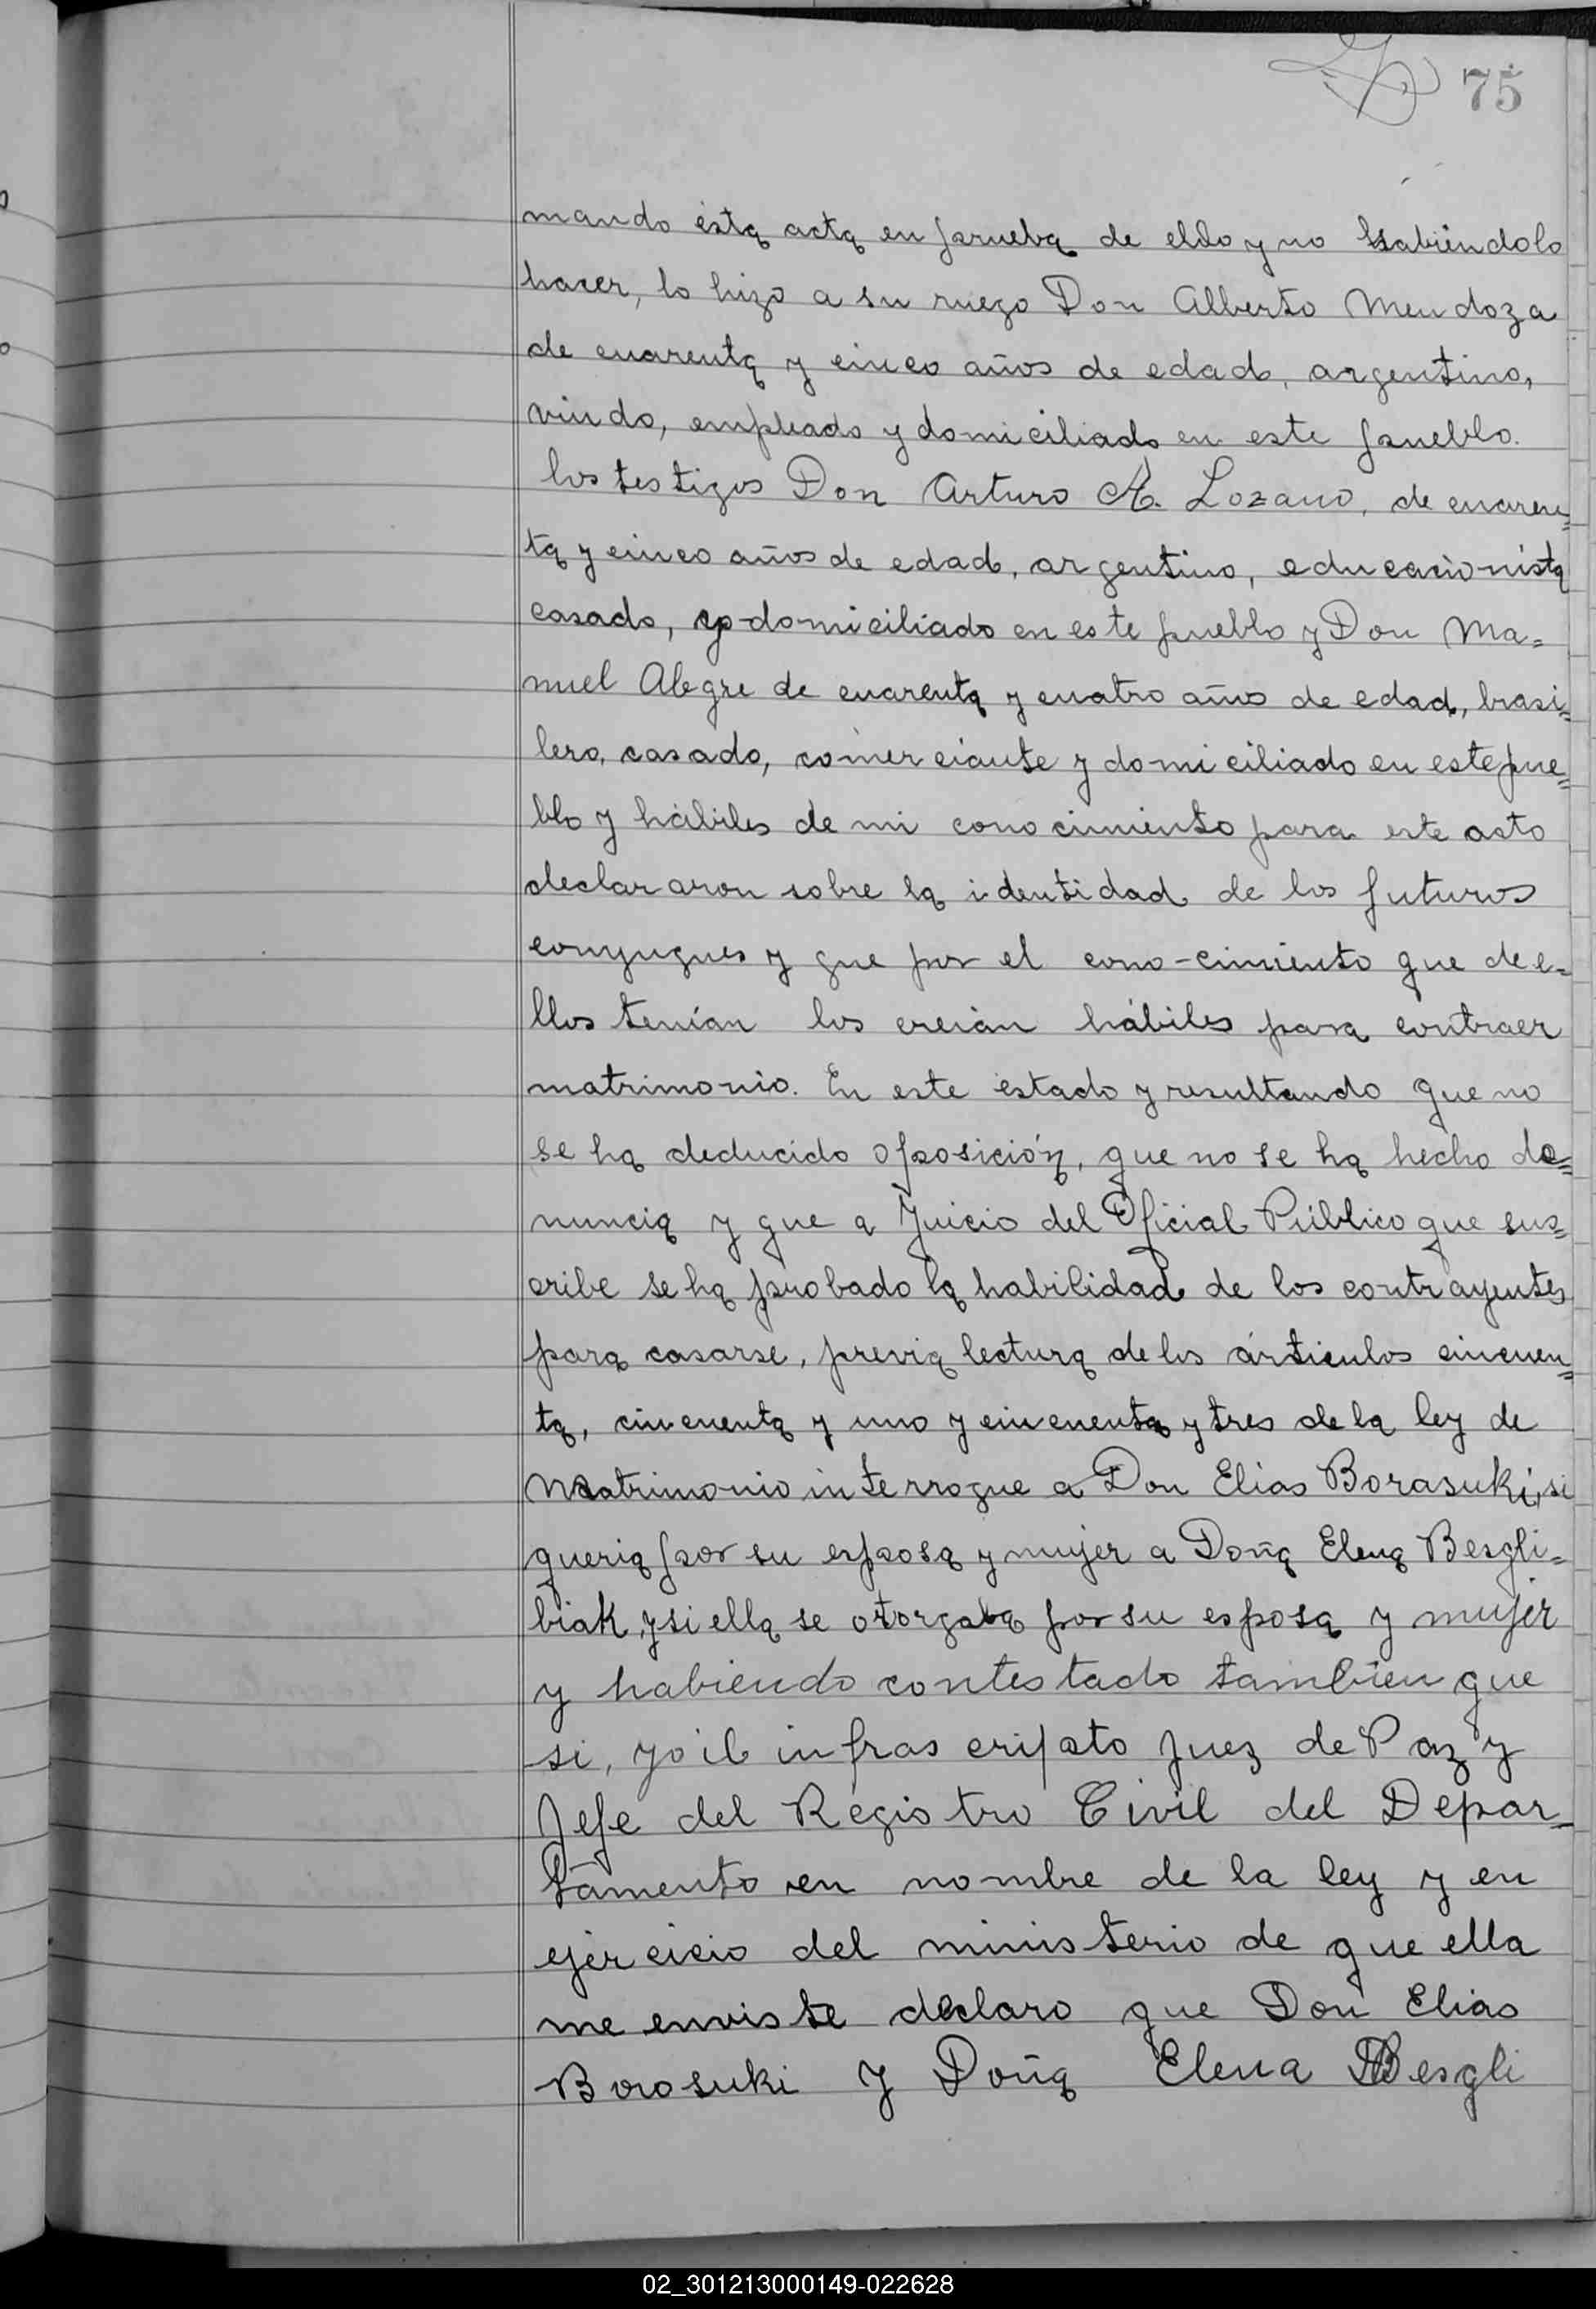 75
mando ésta acta en prueba de ello y no sabiéndolo
hacer, lo hizo a su ruego Don Alberto Mendoza
de cuarenta y cinco años de edad, argentino,
viudo, empleado y domiciliado en este pueblo.
los testigos Don Arturo A. Lozano, de cuaren=
ta y cinco años de edad, argentino, educacionista
casado, y domiciliado en este pueblo y Don Ma=
nuel Alegre de cuarenta y cuatro años de edad, brasi=
lero, casado, comerciante y domiciliado en este pue=
blo y hábiles de mi conocimiento para este acto
declararon sobre la identidad de los futuros
conyugues y que por el cono-cimiento que de e=
llos tenían los creian hábiles para contraer
matrimonio. En este estado y resultando que no
se ha deducido oposición, que no se ha hecho de=
nuncia y que a Juicio del Oficial Público que sus=
cribe se ha probado la habilidad de los contrayentes
para casarse, previa lectura de los árticulos cincuen=
ta, cincuenta y uno y cincuenta y tres de la ley de
Matrimonio interrogue a Don Elias Borasuki, si
queria por su esposa y mujer a Doña Elena Besgli=
biak, y si ella se otorgaba por su esposa y mujer
y habiendo contestado tambien que
si, yo il infrascripto Juez de Paz y
Jefe del Registro Civil del Depar-
tamento en nombre de la ley y en
ejercicio del ministerio de que ella
me enviste declaro que Don Elias
Borosuki y Doña Elena Besgli
02_301213000149-022628